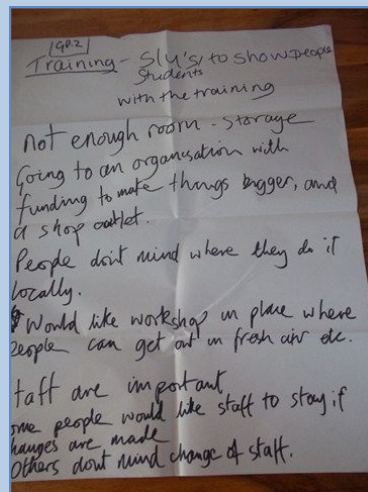 GP.2
Training - Sly's, to show people
Students
with the training
not enough room - storage
Going to an organisation with
funding to make things bigger, and
a shop outlet.
People don't mind where they do it
locally.
Would like workshop in place where
people can get out in fresh air etc.
taff are important
ome people would like staff to stay if
hanges are made
Others dont mind change of staff.